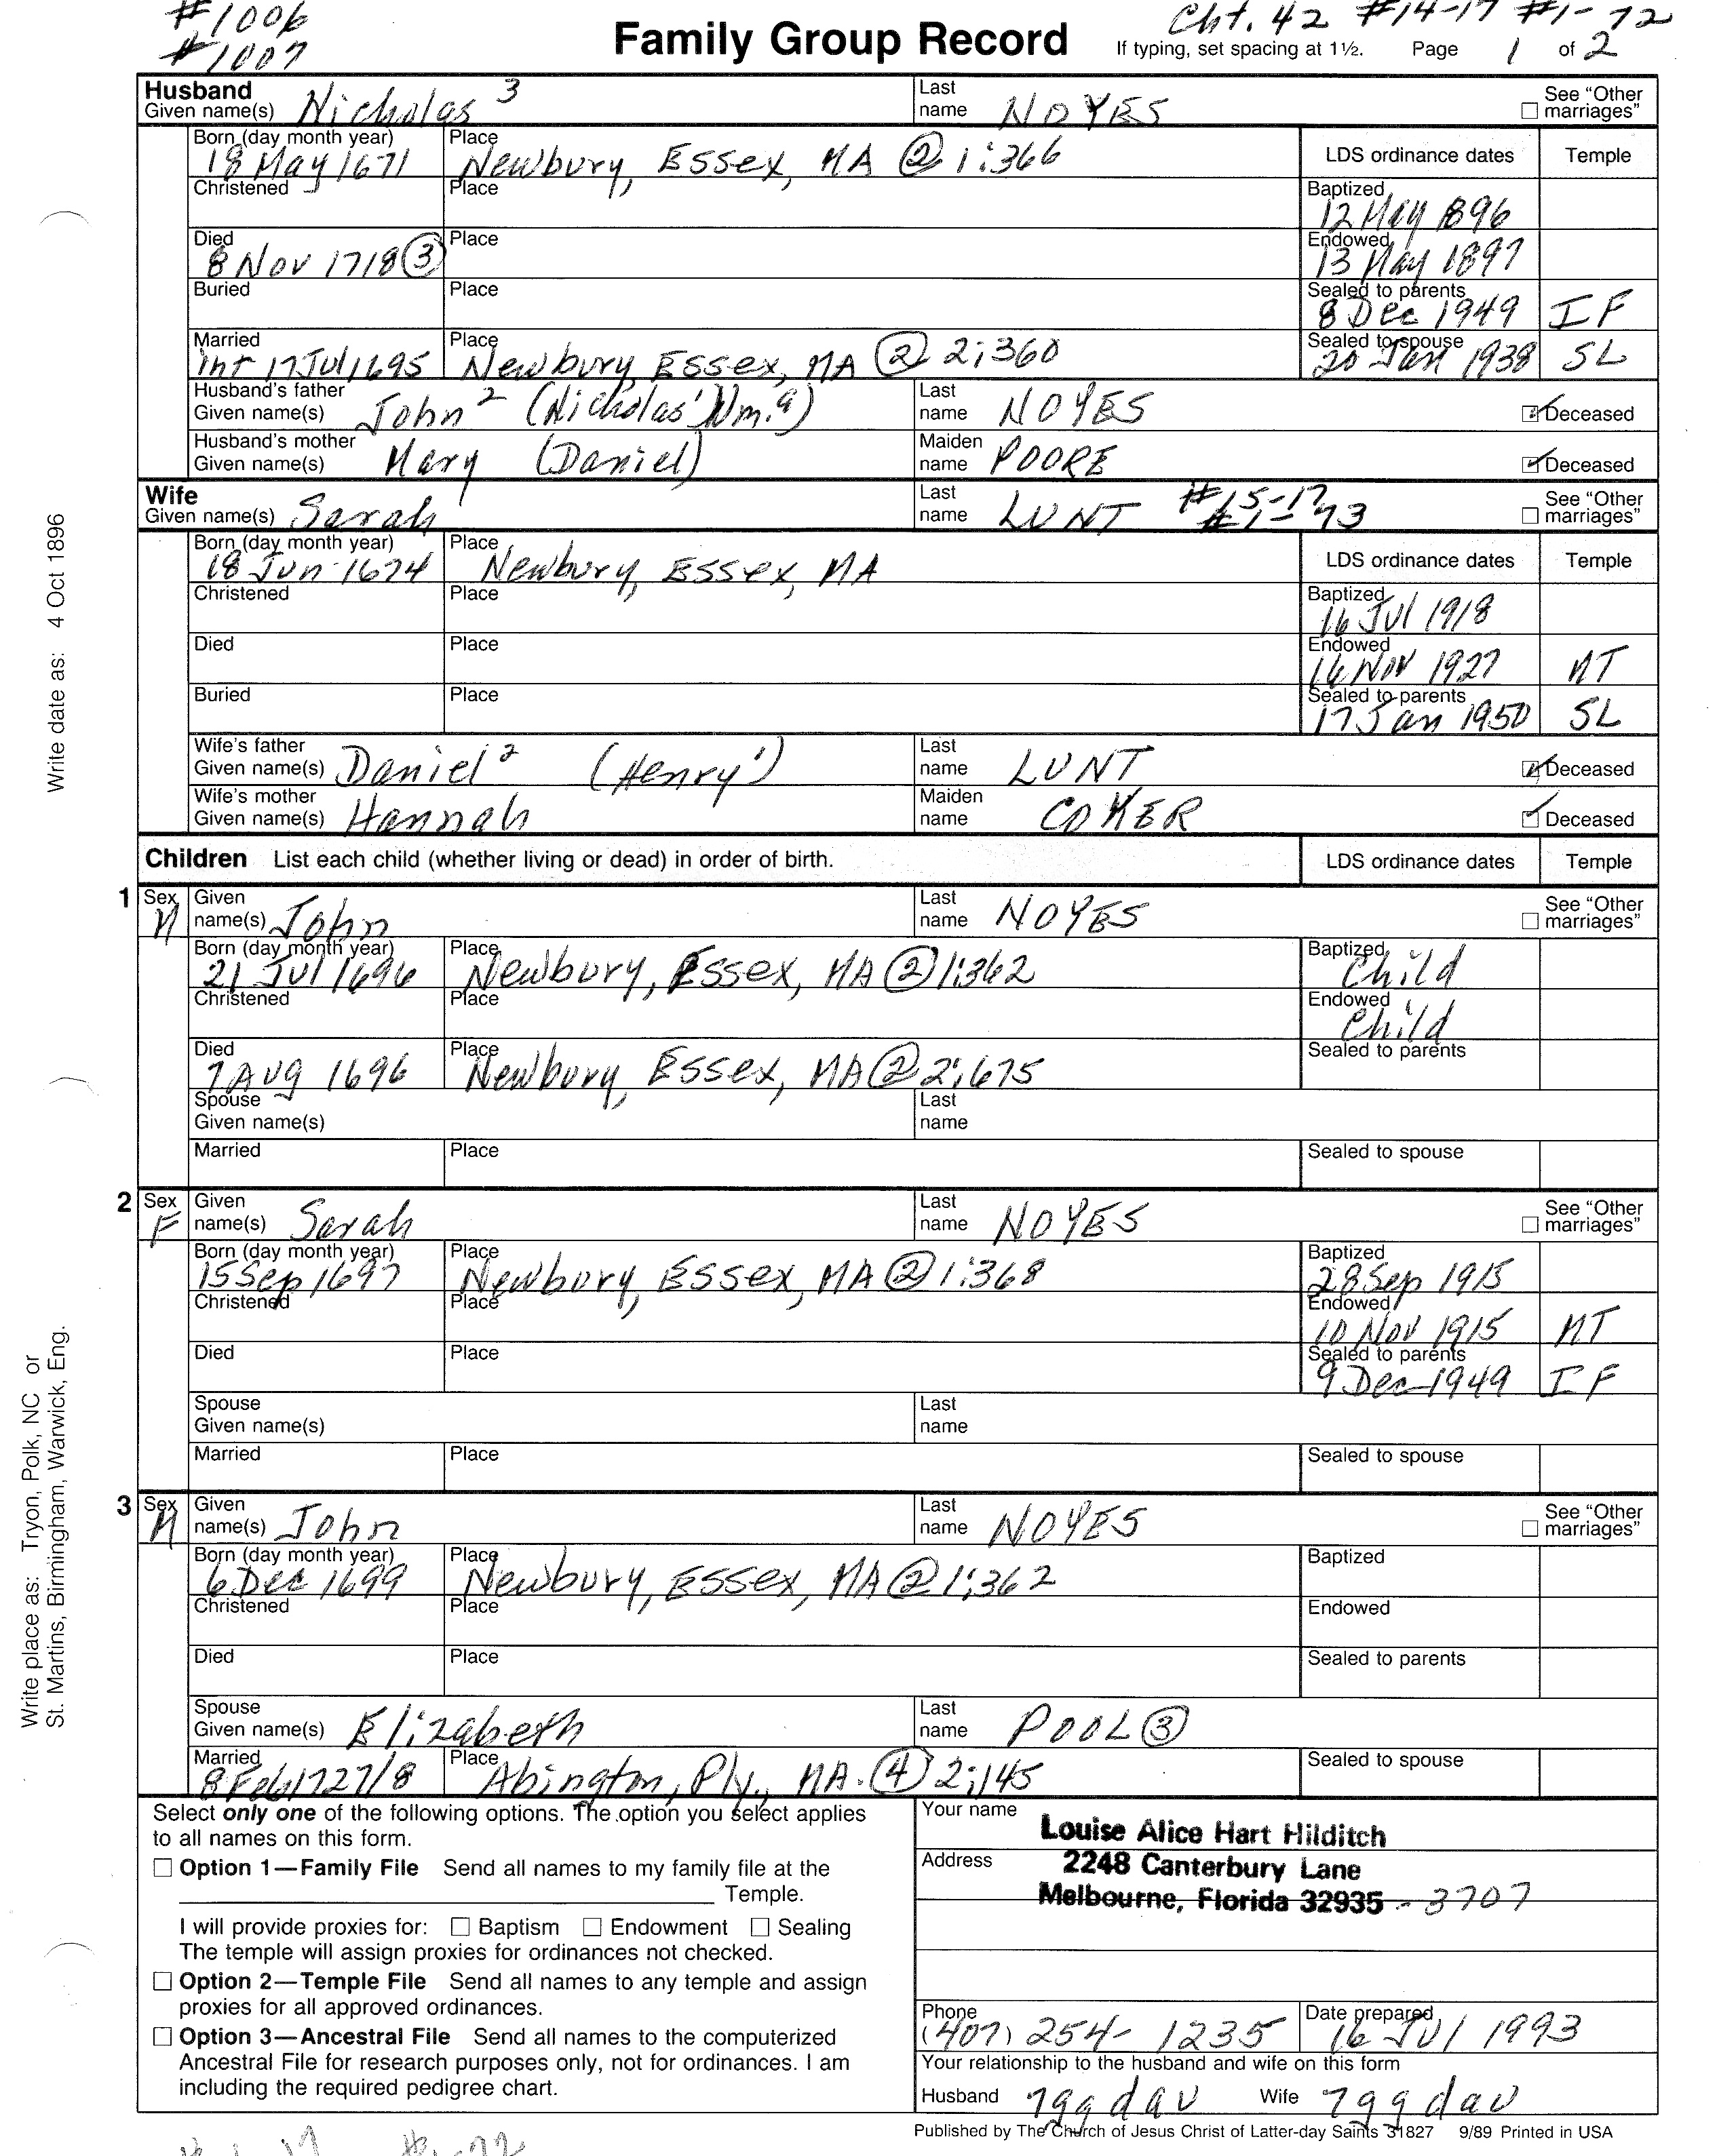 #1006 Cht. 42 #14-17 #1-72
#1007 Family Group Record If typing, set spacing at 1½. Page 1 of 2
Husband
Given name(s) Nicholas 3 Last name NOYES See “Other marriages”
Born (day month year) 18 May 1671 Place Newbury, Essex, MA @ 1:366 LDS ordinance dates Temple
Christened Place Baptized 12 May 1896
Died 8 Nov 1718 ③ Place Endowed 13 May 1897
Buried Place Sealed to parents 8 Dec 1949 IF
Married int 17 Jul 1695 Place Newbury, Essex, MA ② 2:360 Sealed to spouse 20 Jan 1938 SL
Husband's father Given name(s) John 2 (Nicholas 1 Wm. a) Last name NOYES Deceased
Husband's mother Given name(s) Mary (Daniel) Maiden name POORE Deceased
Wife
Given name(s) Sarah Last name LUNT #15-17 #1-73 See “Other marriages”
Born (day month year) 18 Jun 1674 Place Newbury, Essex, MA LDS ordinance dates Temple
Christened Place Baptized 16 Jul 1918
Died Place Endowed 16 Nov 1927 MT
Buried Place Sealed to parents 17 Jan 1950 SL
Wife's father Given name(s) Daniel 2 (Henry 1) Last name LUNT Deceased
Wife's mother Given name(s) Hannah Maiden name COKER Deceased
Children List each child (whether living or dead) in order of birth. LDS ordinance dates Temple
1 Sex M Given name(s) John Last name NOYES See “Other marriages”
Born (day month year) 21 Jul 1696 Place Newbury, Essex, MA ② 1:362 Baptized Child
Christened Place Endowed Child
Died 7 Aug 1696 Place Newbury, Essex, MA ② 2:675 Sealed to parents
Spouse Given name(s) Last name
Married Place Sealed to spouse
2 Sex F Given name(s) Sarah Last name NOYES See “Other marriages”
Born (day month year) 15 Sep 1697 Place Newbury, Essex, MA ② 1:368 Baptized 28 Sep 1915
Christened Place Endowed 10 Nov 1915 MT
Died Place Sealed to parents 9 Dec 1949 IF
Spouse Given name(s) Last name
Married Place Sealed to spouse
3 Sex M Given name(s) John Last name NOYES See “Other marriages”
Born (day month year) 6 Dec 1699 Place Newbury, Essex, MA ② 1:362 Baptized
Christened Place Endowed
Died Place Sealed to parents
Spouse Given name(s) Elizabeth Last name POOL ③
Married 8 Feb 1727/8 Place Abington, Ply., MA. ④ 2:145 Sealed to spouse
Select only one of the following options. The option you select applies
to all names on this form.
Option 1—Family File Send all names to my family file at the
Temple.
I will provide proxies for: Baptism Endowment Sealing
The temple will assign proxies for ordinances not checked.
Option 2—Temple File Send all names to any temple and assign
proxies for all approved ordinances.
Option 3—Ancestral File Send all names to the computerized
Ancestral File for research purposes only, not for ordinances. I am
including the required pedigree chart.
Your name Louise Alice Hart Hilditch
Address 2248 Canterbury Lane
Melbourne, Florida 32935 - 3707
Phone (407) 254-1235 Date prepared 16 Jul 1993
Your relationship to the husband and wife on this form
Husband 7gg dau Wife 7gg dau
Published by The Church of Jesus Christ of Latter-day Saints 31827 9/89 Printed in USA
Write date as: 4 Oct 1896
Write place as: Tryon, Polk, NC or
St. Martins, Birmingham, Warwick, Eng.